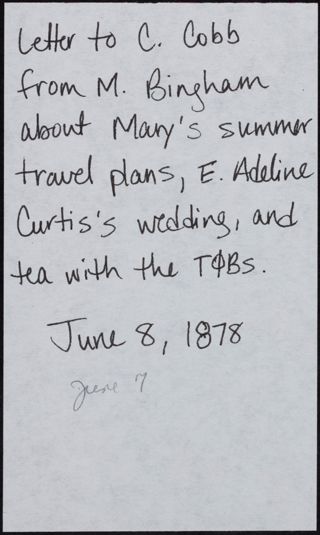 Letter to C. Cobb
from M. Bingham
about Mary's summer
travel plans, E. Adeline
Curtis's wedding, and
tea with the TΦBs.
June 8, 1878
June 7